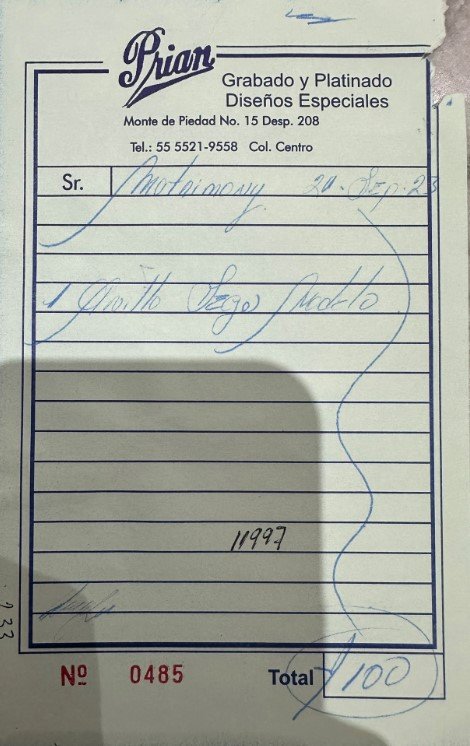 Prian
Grabado y Platinado
Diseños Especiales
Monte de Piedad No. 15 Desp. 208
Tel.: 55 5521-9558 Col. Centro
Sr. Matrimony 20. Sep. 23
1 Anillo Modelo
11997
Nº 0485 Total 100
233